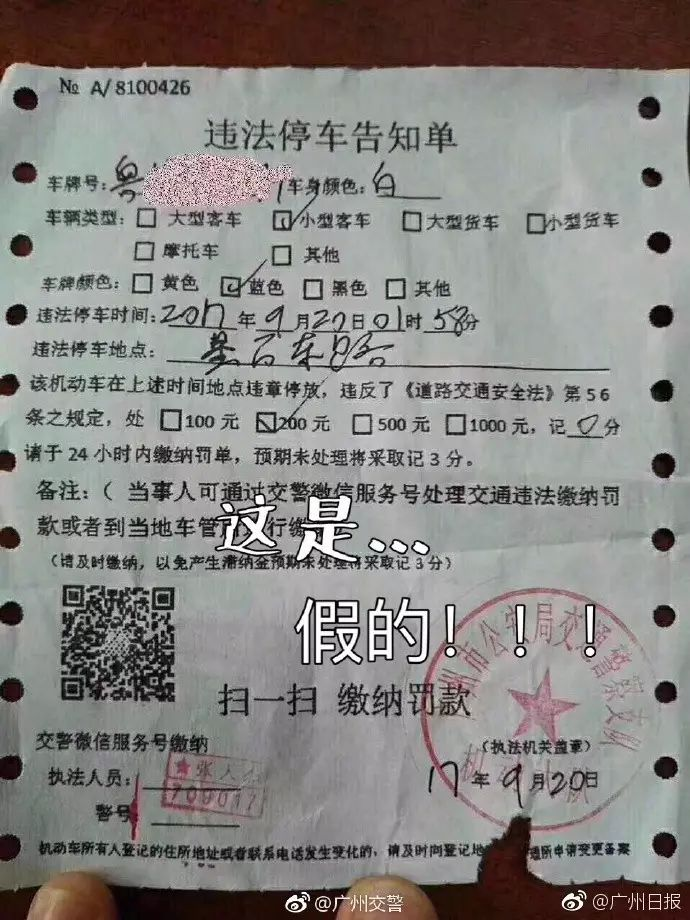 № A/8100426
违法停车告知单
车牌号：粤 车身颜色：白
车辆类型：□ 大型客车 ☑ 小型客车 □ 大型货车 □ 小型货车
□ 摩托车 □ 其他
车牌颜色：□ 黄色 ☑ 蓝色 □ 黑色 □ 其他
违法停车时间：2017年9月20日01时58分
违法停车地点：路
该机动车在上述时间地点违章停放，违反了《道路交通安全法》第56
条之规定，处 □100元 ☑200元 □500元 □1000元，记0分
请于24小时内缴纳罚单，预期未处理将采取记3分。
备注：（ 当事人可通过交警微信服务号处理交通违法缴纳罚
款或者到当地车管 行缴
这是...
(请及时缴纳，以免产生滞纳金预期未处理将采取记3分)
假的！！！
州市公安局交通警察支队
扫一扫 缴纳罚款
交警微信服务号缴纳
(执法机关盖章)
执法人员：
17年9月20日
警号：
709017
机动车所有人登记的住所地址或者联系电话发生变化的，请及时向登记地 申请变更备案
@广州交警
@广州日报